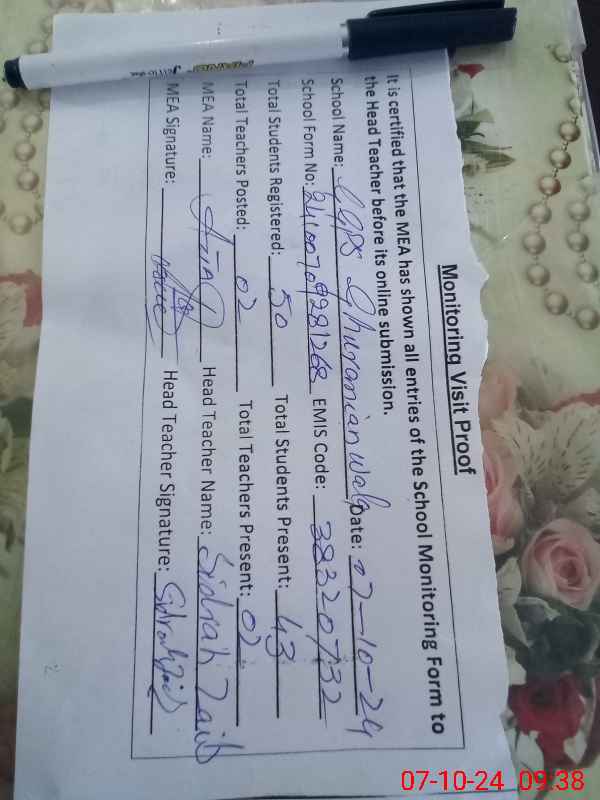 Monitoring Visit Proof
It is certified that the MEA has shown all entries of the School Monitoring Form to
the Head Teacher before its online submission.
School Name: GGPS Ghuramianwala Date: 07-10-24
School Form No: 24100709281268 EMIS Code: 38320732
Total Students Registered: 50 Total Students Present: 43
Total Teachers Posted: 02 Total Teachers Present: 02
MEA Name: Head Teacher Name: Sidrah Zaib
MEA Signature: Head Teacher Signature:
07-10-24 09:38